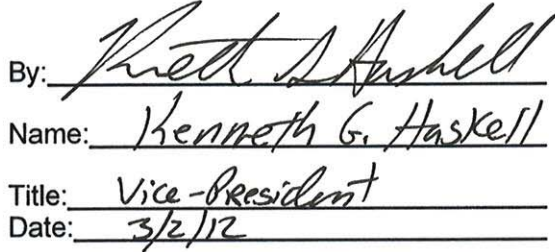 By: Kenneth G Haskell
Name: Kenneth G. Haskell
Title: Vice-President
Date: 3/2/12